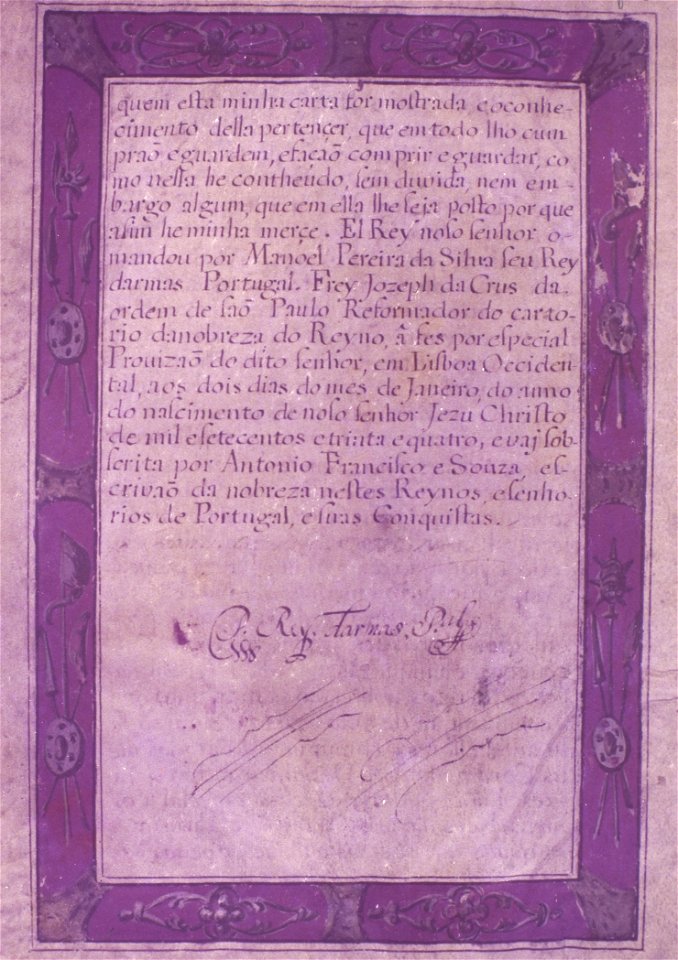 quem esta minha carta for mostrada eoconhe-
cimento della pertencer, que em todo lho cum
praõ eguardem, efaçaõ comprir e guardar, co
mo nesta he contheudo, sem duvida, nem em-
bargo algum, que em ella lhe seja posto por que
asim he minha merçe. El Rey noso senhor o
mandou por Manoel Pereira da Silva seu Rey
darmas Portugal. Frey Jozeph da Crus da
ordem de saõ Paulo Reformador do carto-
rio danobreza do Reyno, â fes por especial
Provizaõ do dito senhor, em Lisboa Occiden-
tal, aos dois dias do mes de Janeiro, do anno
do nascimento de noso senhor Jezu Christo
de mil esetecentos etrinta equatro, evaj sob-
scrita por Antonio Francisco e Souza, es-
crivaõ da nobreza nestes Reynos, esenho-
rios de Portugal, e suas Conquistas.
P. Rey. Darmas. P.al